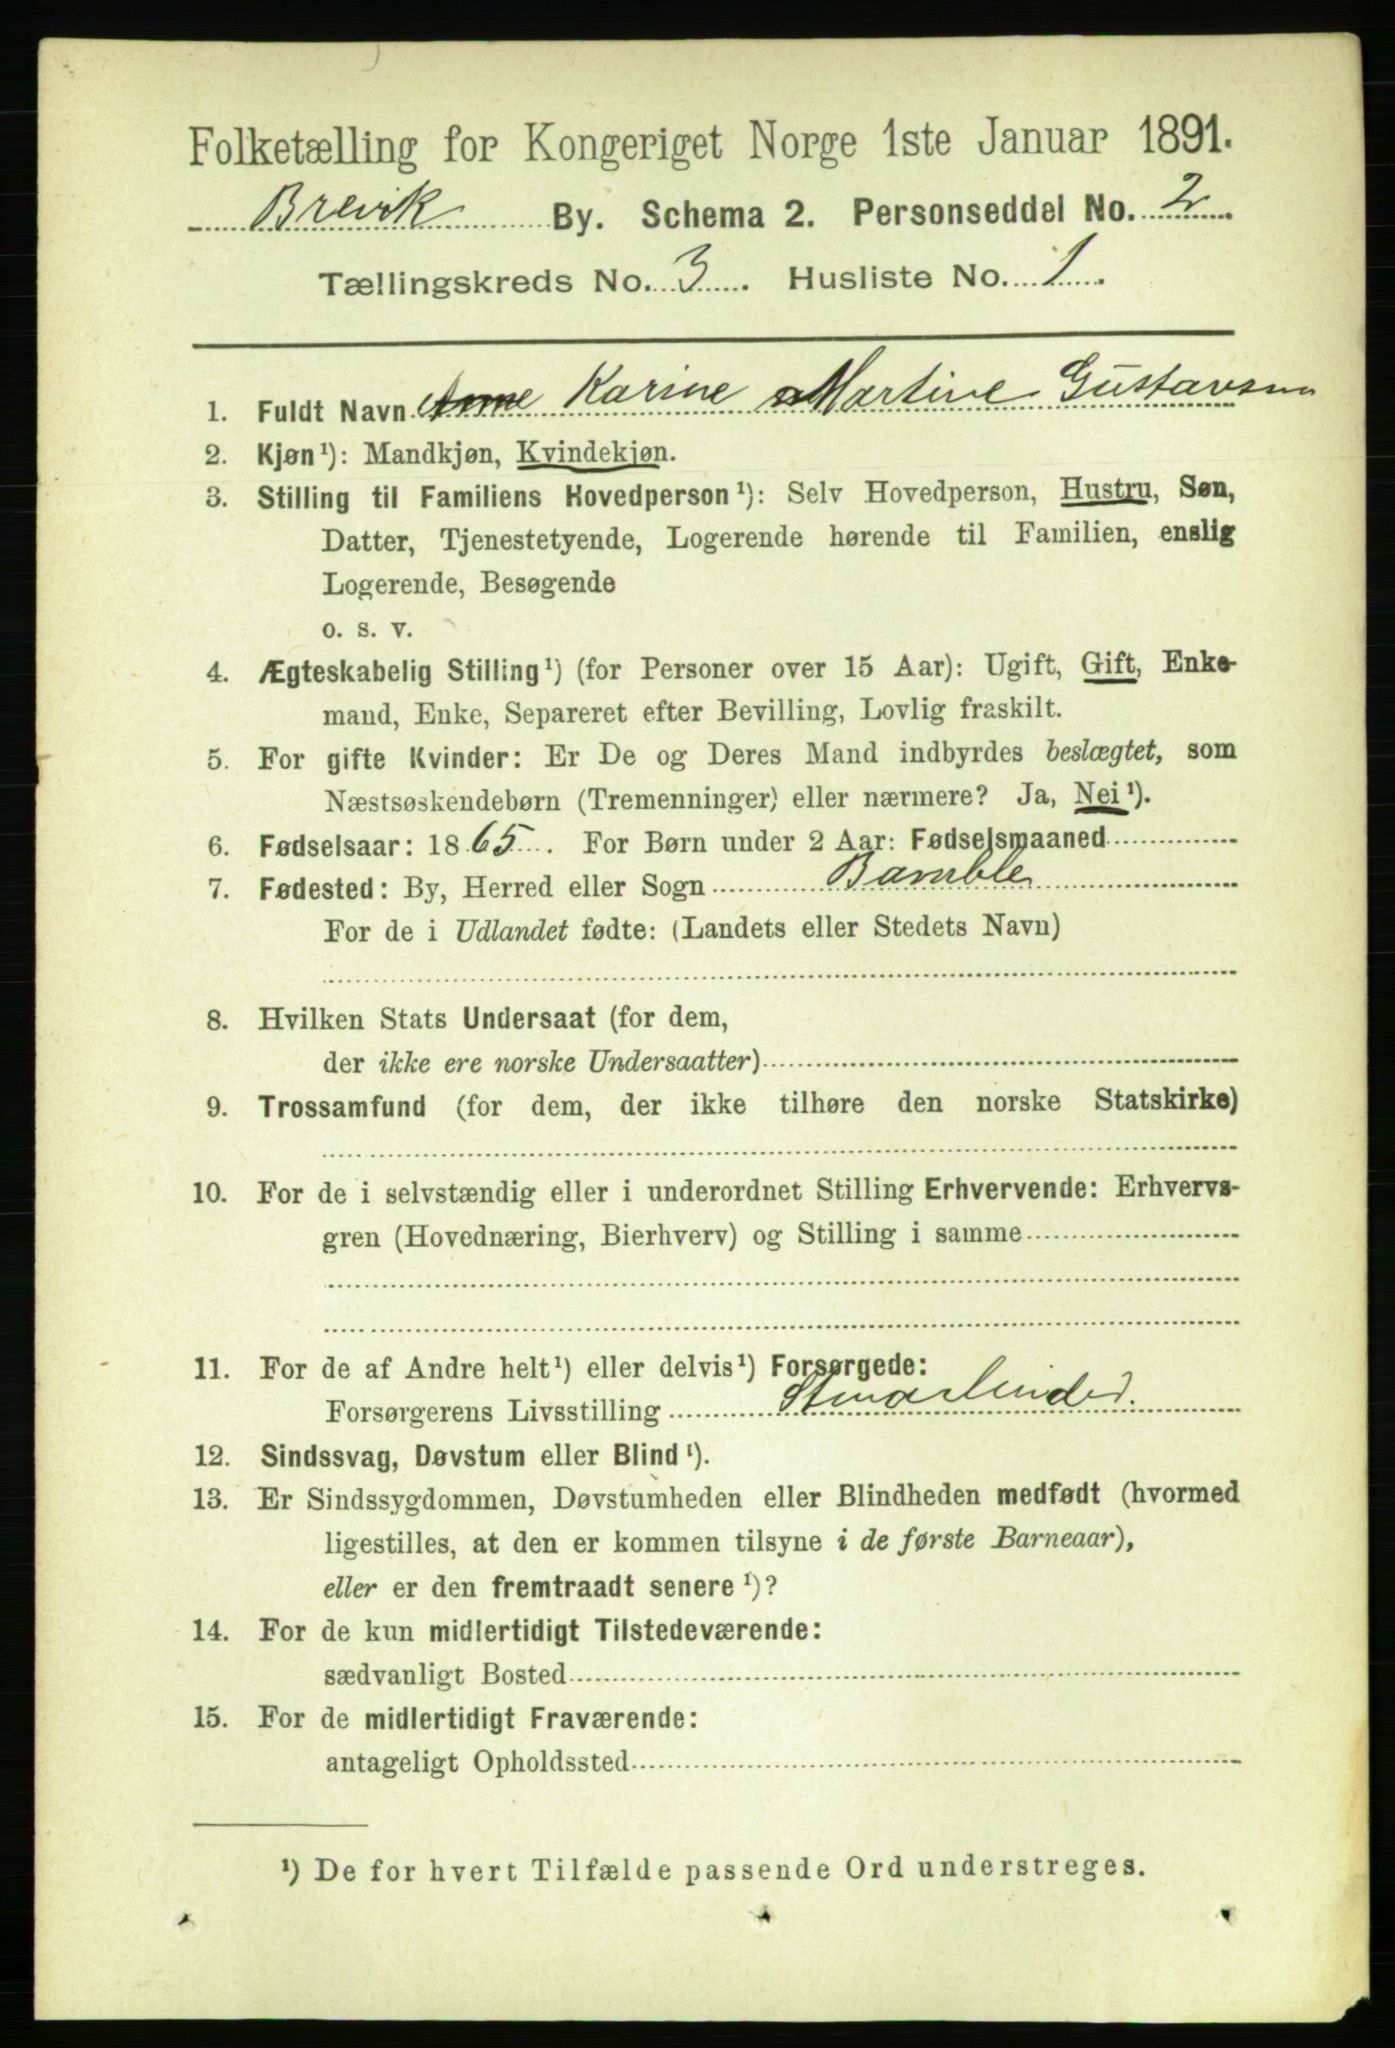 Folketælling for Kongeriget Norge 1ste Januar 1891.
Brevik By. Schema 2. Personseddel No. 2
Tællingskreds No. 3. Husliste No. 1.
1. Fuldt Navn Anne Karine Martine Gustavsen
2. Kjøn¹): Mandkjøn, Kvindekjøn.
3. Stilling til Familiens Hovedperson¹): Selv Hovedperson, Hustru, Søn,
Datter, Tjenestetyende, Logerende hørende til Familien, enslig
Logerende, Besøgende
o. s. v.
4. Ægteskabelig Stilling¹) (for Personer over 15 Aar): Ugift, Gift, Enke-
mand, Enke, Separeret efter Bevilling, Lovlig fraskilt.
5. For gifte Kvinder: Er De og Deres Mand indbyrdes beslægtet, som
Næstsøskendebørn (Tremenninger) eller nærmere? Ja, Nei¹).
6. Fødselsaar: 1865. For Børn under 2 Aar: Fødselsmaaned
7. Fødested: By, Herred eller Sogn Bamble
For de i Udlandet fødte: (Landets eller Stedets Navn)
8. Hvilken Stats Undersaat (for dem,
der ikke ere norske Undersaatter)
9. Trossamfund (for dem, der ikke tilhøre den norske Statskirke)
10. For de i selvstændig eller i underordnet Stilling Erhvervende: Erhvervs-
gren (Hovednæring, Bierhverv) og Stilling i samme
11. For de af Andre helt¹) eller delvis¹) Forsørgede:
Forsørgerens Livsstilling
12. Sindssvag, Døvstum eller Blind¹).
13. Er Sindssygdommen, Døvstumheden eller Blindheden medfødt (hvormed
ligestilles, at den er kommen tilsyne i de første Barneaar),
eller er den fremtraadt senere¹)?
14. For de kun midlertidigt Tilstedeværende:
sædvanligt Bosted
15. For de midlertidigt Fraværende:
antageligt Opholdssted
¹) De for hvert Tilfælde passende Ord understreges.